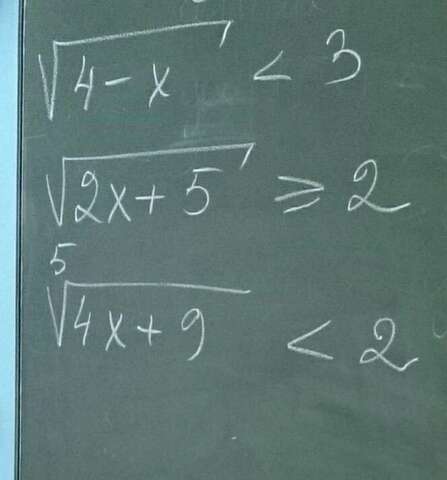 √4-x < 3
√2x+5 ⩾ 2
⁵√4x+9 < 2